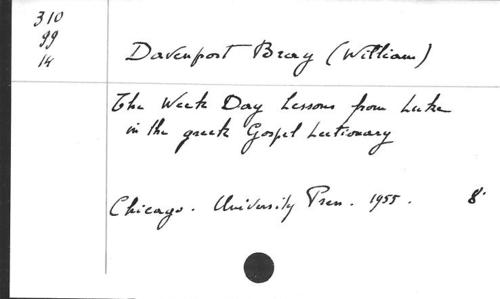 310
99
14
Davenport Bray (William)
The Week Day Lessons from Luke
in the greek Gospel Lectionary
Chicago. University Press. 1955. 8°